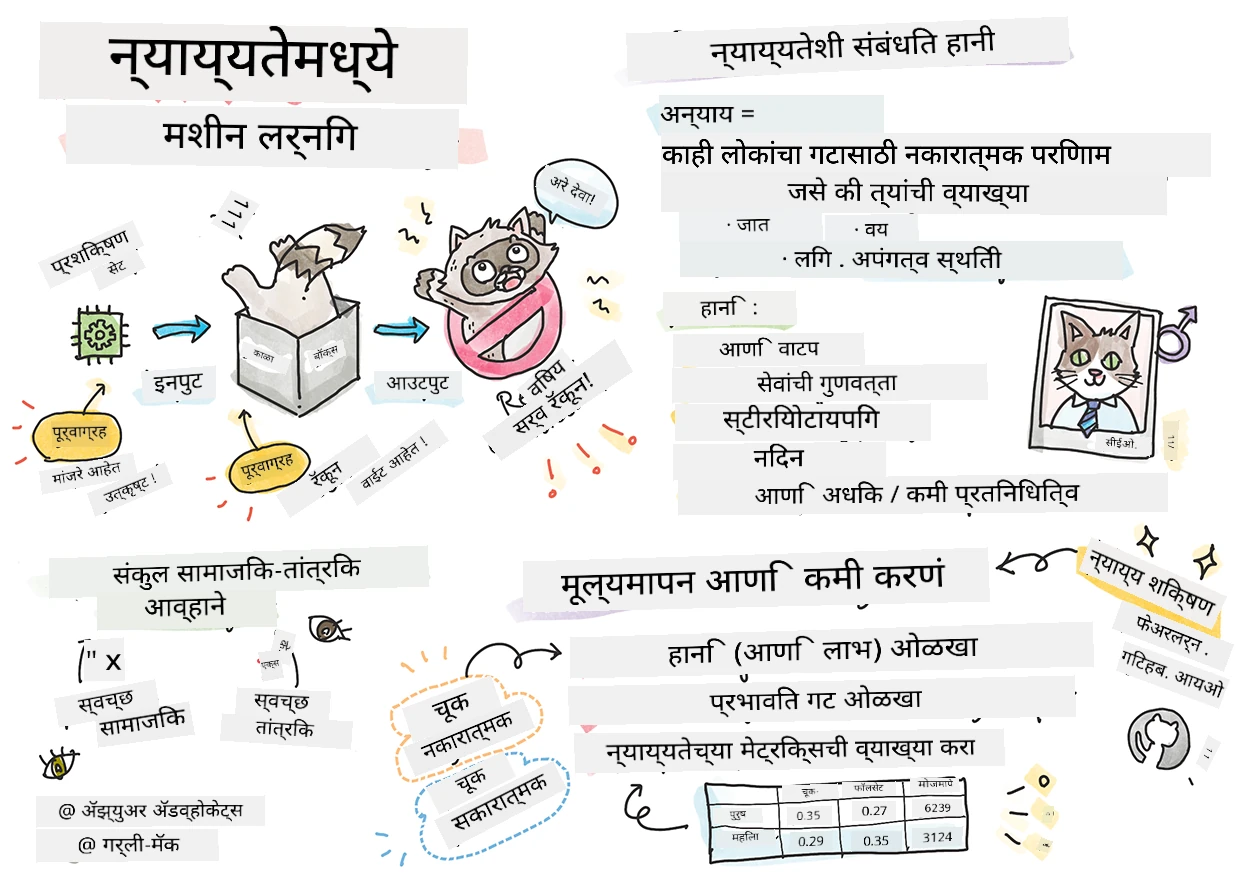 न्याय्यतेमध्ये
मशीन लर्निंग
प्रशिक्षण
सेट
इनपुट
काळा
बॉक्स
आउटपुट
अरे देवा!
विषय
सर्व रॅकून!
पूर्वाग्रह
मांजरे आहेत
उत्कृष्ट !
पूर्वाग्रह
रॅकून
वाईट आहेत !
न्याय्यतेशी संबंधित हानी
अन्याय =
काही लोकांचा गटासाठी नकारात्मक परिणाम
जसे की त्यांची व्याख्या
· जात · वय
· लिंग . अपंगत्व स्थिती
हानि :
आणि वाटप
सेवांची गुणवत्ता
स्टीरियोटायपिंग
निंदन
आणि अधिक / कमी प्रतिनिधित्व
सीईओ.
संकुल सामाजिक-तांत्रिक
आव्हाने
" x
स्वच्छ
सामाजिक
स्वच्छ
तांत्रिक
@ अ‍ॅझ्युअर अ‍ॅडव्होकेट्स
@ गर्ली-मॅक
मूल्यमापन आणि कमी करणं
हानि (आणि लाभ) ओळखा
प्रभावित गट ओळखा
न्याय्यतेच्या मेट्रिक्सची व्याख्या करा
चूक
नकारात्मक
चूक
सकारात्मक
चूक· फॉलसेट मोजमापे
पुरुष 0.35 0.27 6239
महिला 0.29 0.35 3124
न्याय्य शिक्षण
फेअरलर्न .
गिटहब. आयओ